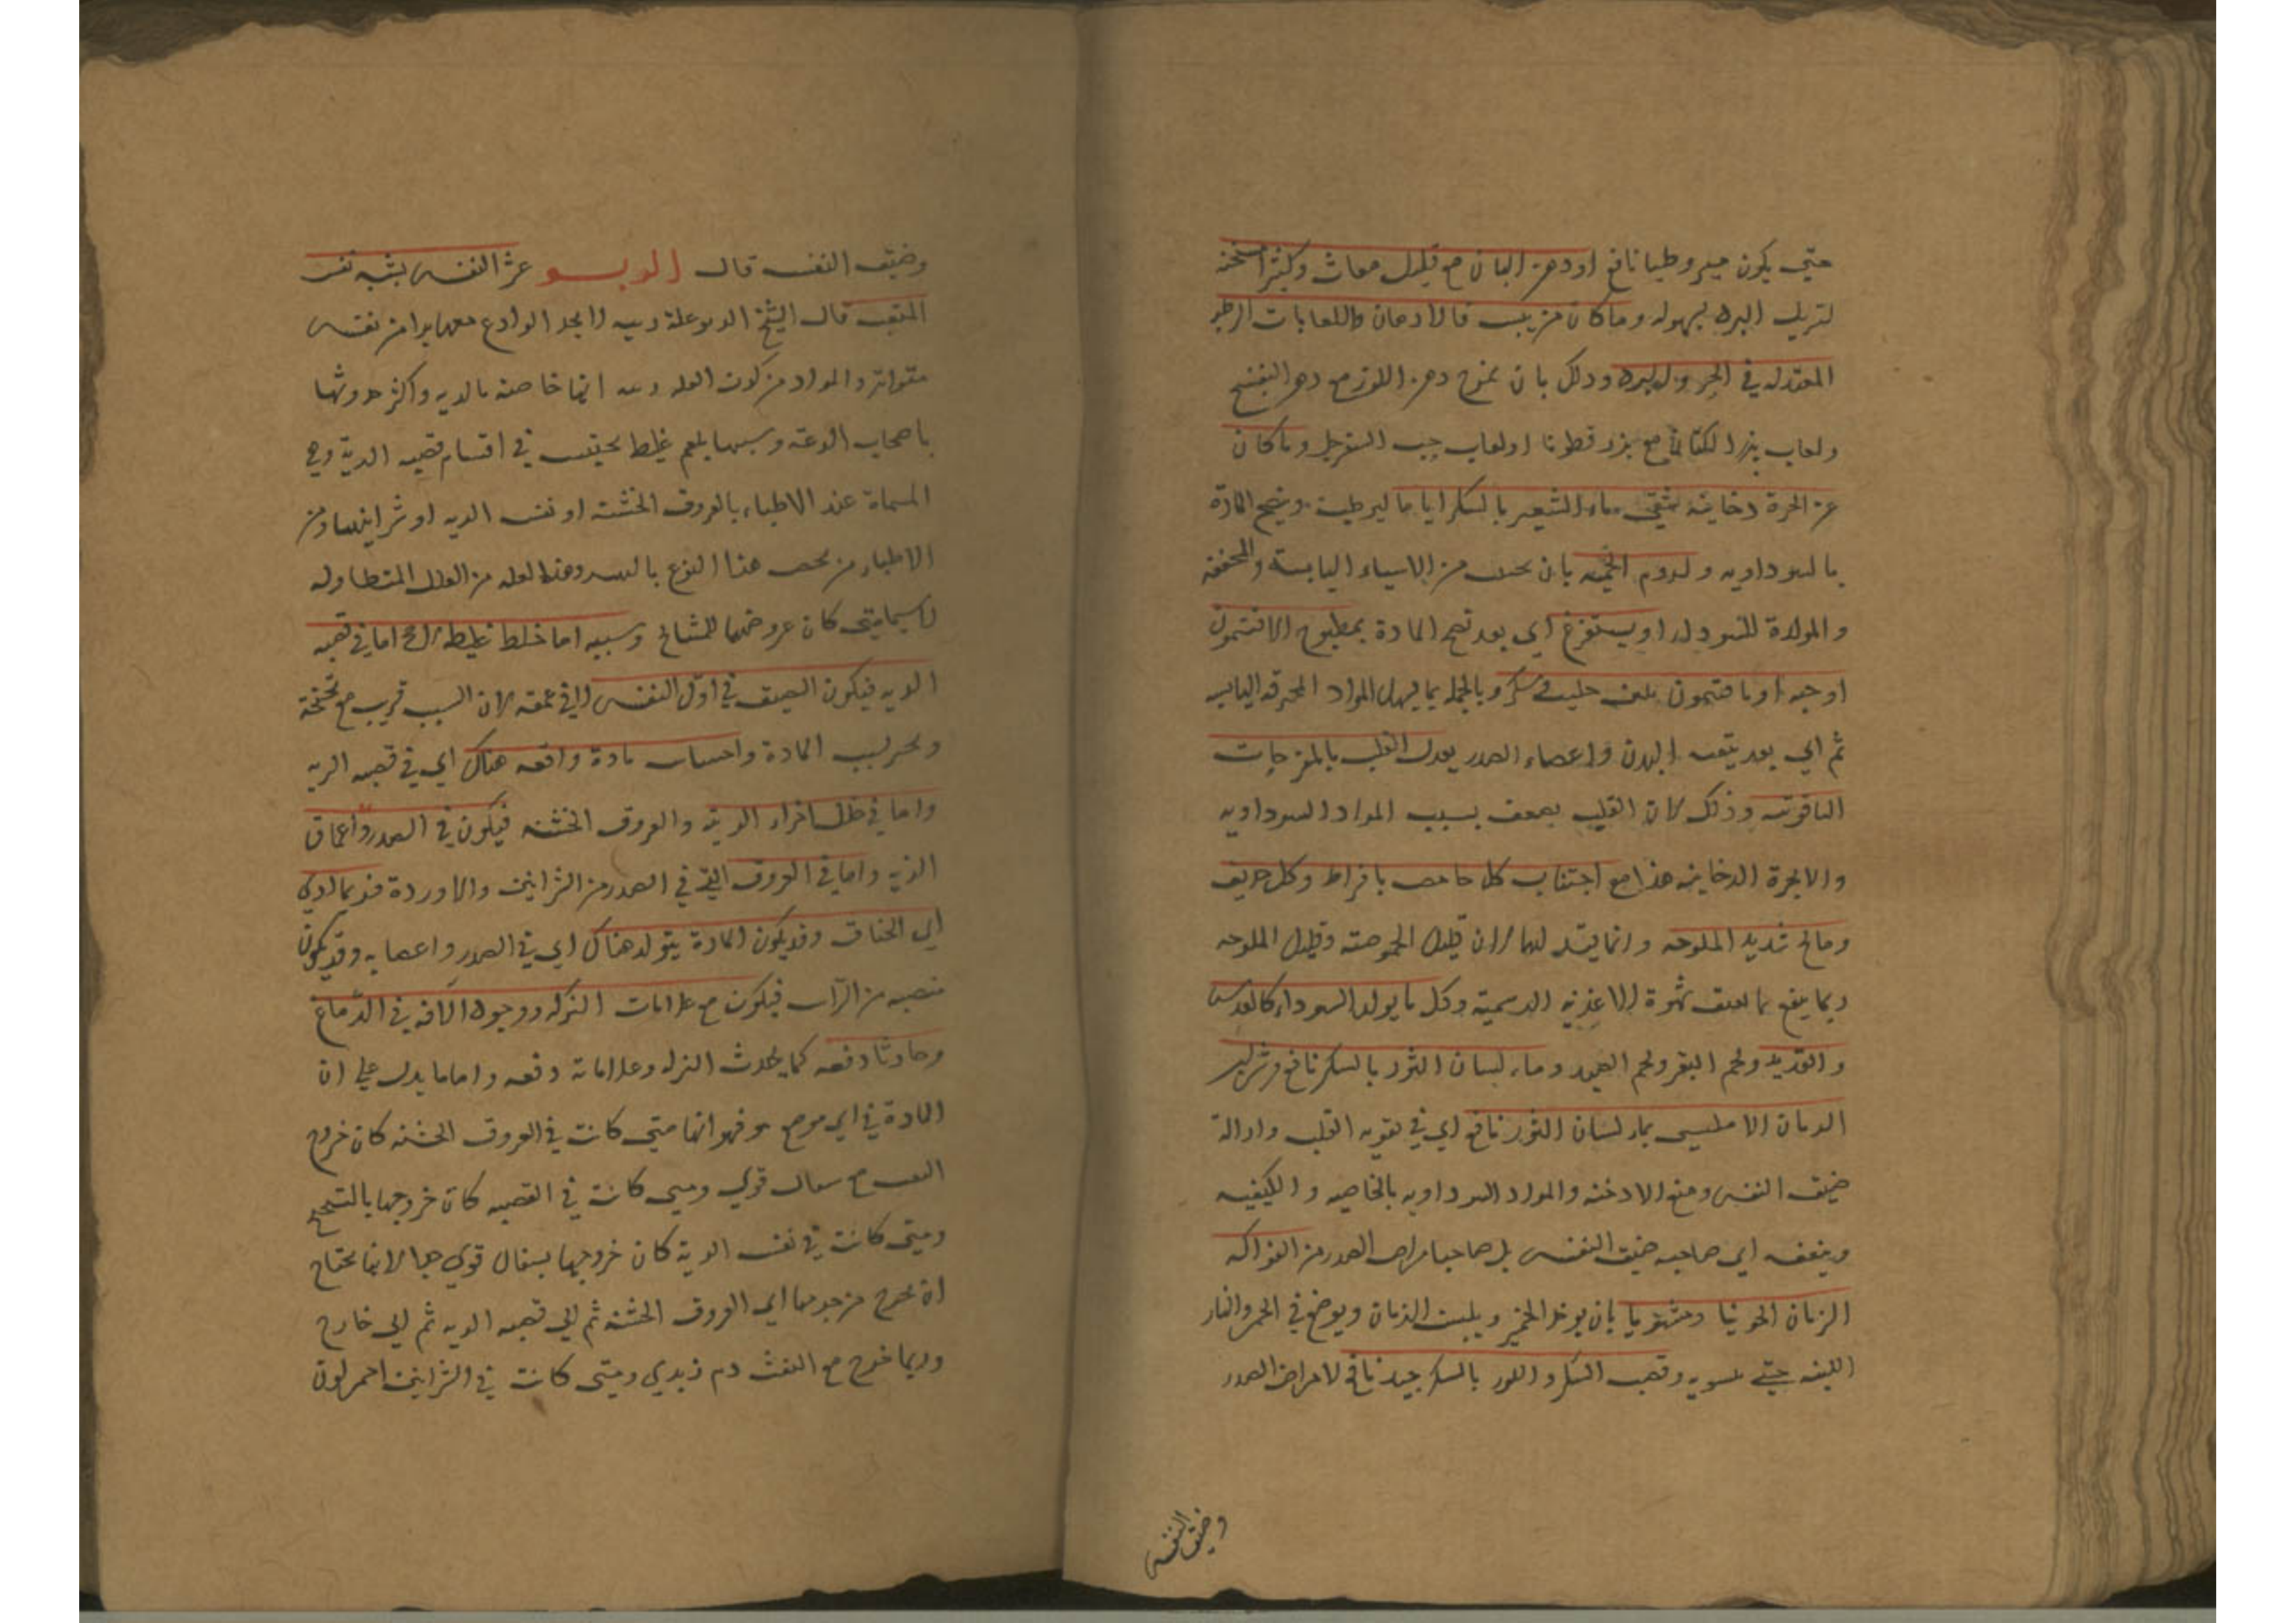 حتى يكون قيروطيا نافع او دهن البان مع قليل مصاب وكثيرا مسخنه
لتزيل البرد بسهوله وما كان من يبس فالادهان واللعابات الرطبه
المعتدله في الحر والبرد وذلك بان يمزج دهن اللوز مع دهن البنفسج
ولعاب بزر الكتان مع بزر قطونا او لعاب حب السفرجل وما كان
عن ابخرة دخانيه يسقى ماء الشعير بالسكر اياما ليرطب وينضج المادة
بالسوداويه ولزوم الحميه بان يجتنب من الاشياء اليابسة والمجففه
والمولدة للسوداء او يستفرغ اي بعد نضج المادة بمطبوخ الافتيمون
او حبه او بافتيمون بلبن حليب وسكر وبالجمله بما يسهل المواد المحرقه اليابسه
ثم اي بعد تنقيه البدن واعضاء الصدر يعدل القلب بالمفرحات
الياقوتيه وذلك لان القلب يضعف بسبب المواد السوداويه
والابخرة الدخانيه هذا مع اجتناب كل حامض بافراط وكل حريف
ومالح شديد الملوحه وانما قيد لهما لان قليل الحموضه وقليل الملوحه
ربما ينفع بالضيق شهوة الاغذيه الدسمية وكل ما يولد السوداء كالعدس
والقديد ولحم البقر ولحم الصيد وماء لسان الثور بالسكر نافع وشراب
الرمان الامليسي بماء لسان الثور نافع اي في تقويه القلب وازالة
ضيق النفس ومنع الادخنه والمواد السوداويه بالخاصيه والكيفيه
وينفعه اي صاحب ضيق النفس بل صاحب امراض الصدر من الفواكه
الرمان الحلو نيا ومشويا بان يوخذ الخمير ويلبس الرمان ويوضع في الجمر والنار
اللينه حتى يستويه وقصب السكر واللوز بالسكر جيد نافع لامراض الصدر
وضيق النفس
وضيق النفس قال الربو عسر النفس يشبه نفس
المتعب قال الشيخ الربو علة رييه لا يجد الوادع معها بدا من نفس
متواتر والمراد من كون العله رييه انها خاصة بالريه واكثر حدوثها
باصحاب الدعه وسببها بلغم غليظ يحتبس في اقسام قصبه الرية وهي
المسماة عند الاطباء بالعروق الخشنه او نفس الريه او شرايينها ومن
الاطباء من يخص هذا النوع بالبهر وهذه العله من العلل المتطاوله
لاسيما متى كان عروضها للمشائخ وسببه اما خلط غليظ لزج اما في قصبه
الريه فيكون الضيق في اول النفس لا في عمقه لان السبب قريب مع نحنحة
وتحر لسبب المادة واحساس مادة واقفه هناك اي في قصبه الريه
واما في خلل اجزاء الرية والعروق الخشنه فيكون في الصدر واعماق
الريه واما في العروق التي في الصدر من الشرايين والاوردة فربما ادي
الي الخناق وقد يكون المادة يتولد هناك اي في الصدر واعصابه وقد يكون
منصبه من الراس فيكون مع علامات النزله ووجود الافه في الدماغ
وحادثا دفعه كما يحدث النزله وعلاماته دفعه واما ما يدل علي ان
المادة في اي موضع هو فهو انها متى كانت في العروق الخشنه كان خروج
النفث مع سعال قوي ومتى كانت في القصبه كان خروجها بالتنحنح
ومتى كانت في نفس الرية كان خروجها بسعال قوي جدا لانها تحتاج
ان تخرج من جرمها الي العروق الخشنه ثم الي قصبه الريه ثم الي خارج
وربما خرج مع النفث دم زبدي ومتى كانت في الشرايين احمر لون